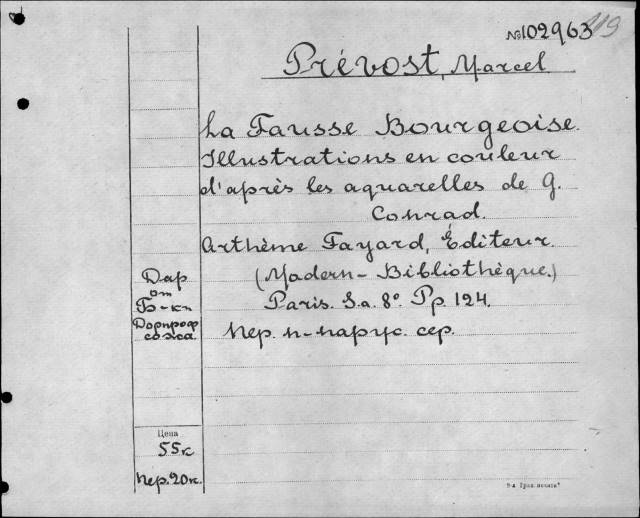 №102963 119
Prévost, Marcel.
La Fausse Bourgeoise.
Illustrations en couleur
d'après les aquarelles de G.
Conrad.
Arthème Fayard, Éditeur.
(Modern-Bibliothèque.)
Paris. S.a. 8º Pp. 124.
Пер. п-парус. сер.
Дар
от
Б-ки
Дорпроф
сожа.
Цена
55к
Пер. 20к.